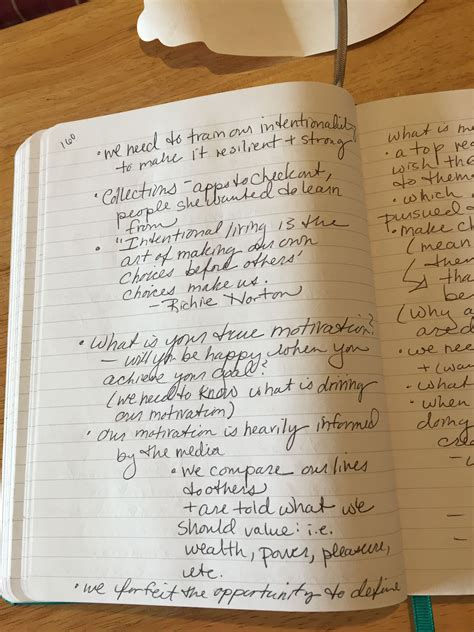 160
• we need to train our intentionality
to make it resilient + strong
• Collections - apps to check out,
people she wanted to learn
from
• "Intentional living is the
art of making our own
choices before others'
choices make us.
- Richie Norton
• What is your true motivation?
- will you be happy when you
achieve your goal?
(we need to know what is driving
our motivation)
• our motivation is heavily informed
by the media
• we compare our lives
to others
+ are told what we
should value: i.e.
wealth, power, pleasure,
etc.
• we forfeit the opportunity to define
what is m
• a top rea
wish the
to them
• which
pursued
• make ch
(mean
(then
tha
be
(Why a
are d
• we nee
+ (wan
• what
• when
doing
crea